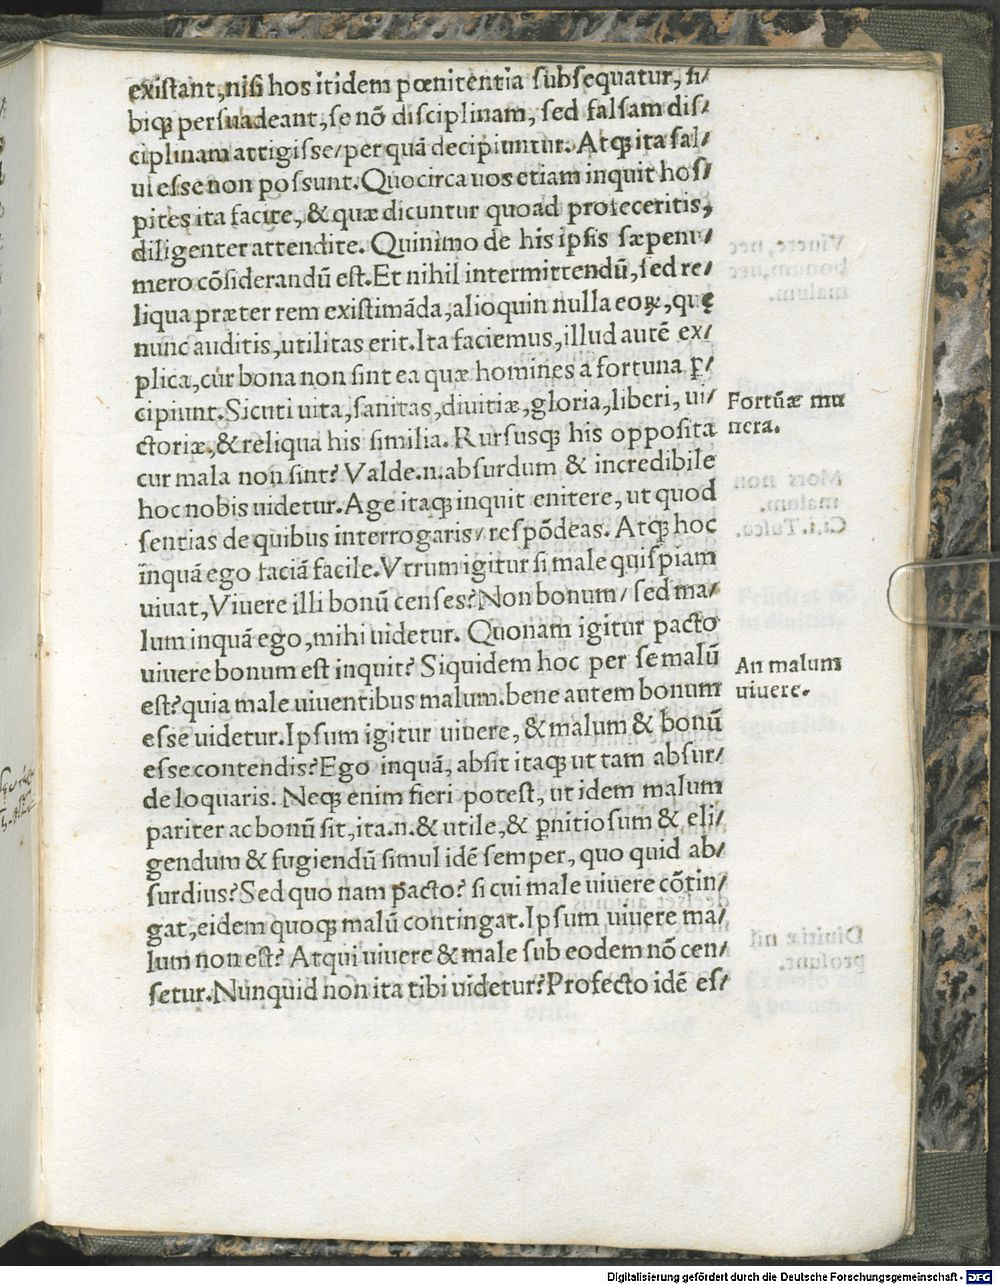 existant, nisi hos itidem pœnitentia subsequatur, si/
biqꝫ persuadeant, se nõ disciplinam, sed falsam dis/
ciplinam attigisse/ per quã decipiuntur. Atqꝫ ita sal/
ui esse non possunt. Quocirca uos etiam inquit hos/
pites ita facite, & quæ dicuntur quoad profeceritis,
diligenter attendite. Quinimo de his ipsis sæpenu/
mero cõsiderandũ est. Et nihil intermittendũ, sed re/
liqua præter rem existimãda, alioquin nulla eoꝝ, quę
nunc auditis, utilitas erit. Ita faciemus, illud autẽ ex/
plica, cur bona non sint ea quæ homines a fortuna ꝑ/
cipiunt. Sicuti uita, sanitas, diuitiæ, gloria, liberi, ui/
ctoriæ, & reliqua his similia. Rursusqꝫ his opposita
cur mala non sint? Valde .n. absurdum & incredibile
hoc nobis uidetur. Age itaqꝫ inquit enitere, ut quod
sentias de quibus interrogaris/ respõdeas. Atqꝫ hoc
inquã ego faciã facile. Vtrum igitur si male quispiam
uiuat, Viuere illi bonũ censes? Non bonum/ sed ma/
lum inquã ego, mihi uidetur. Quonam igitur pacto
uiuere bonum est inquit? Siquidem hoc per se malũ
est? quia male uiuentibus malum. bene autem bonum
esse uidetur. Ipsum igitur uiuere, & malum & bonũ
esse contendis? Ego inquã, absit itaqꝫ ut tam absur/
de loquaris. Neqꝫ enim fieri potest, ut idem malum
pariter ac bonũ sit, ita .n. & utile, & ꝑnitiosum & eli/
gendum & fugiendũ simul idẽ semper, quo quid ab/
surdius? Sed quo nam pacto? si cui male uiuere cõtin/
gat, eidem quoqꝫ malũ contingat. Ipsum uiuere ma/
lum non est? Atqui uiuere & male sub eodem nõ cen/
setur. Nunquid non ita tibi uidetur? Profecto idẽ es/
Fortũæ mu
nera.
An malum
uiuere.
Digitalisierung gefördert durch die Deutsche Forschungsgemeinschaft - DFG